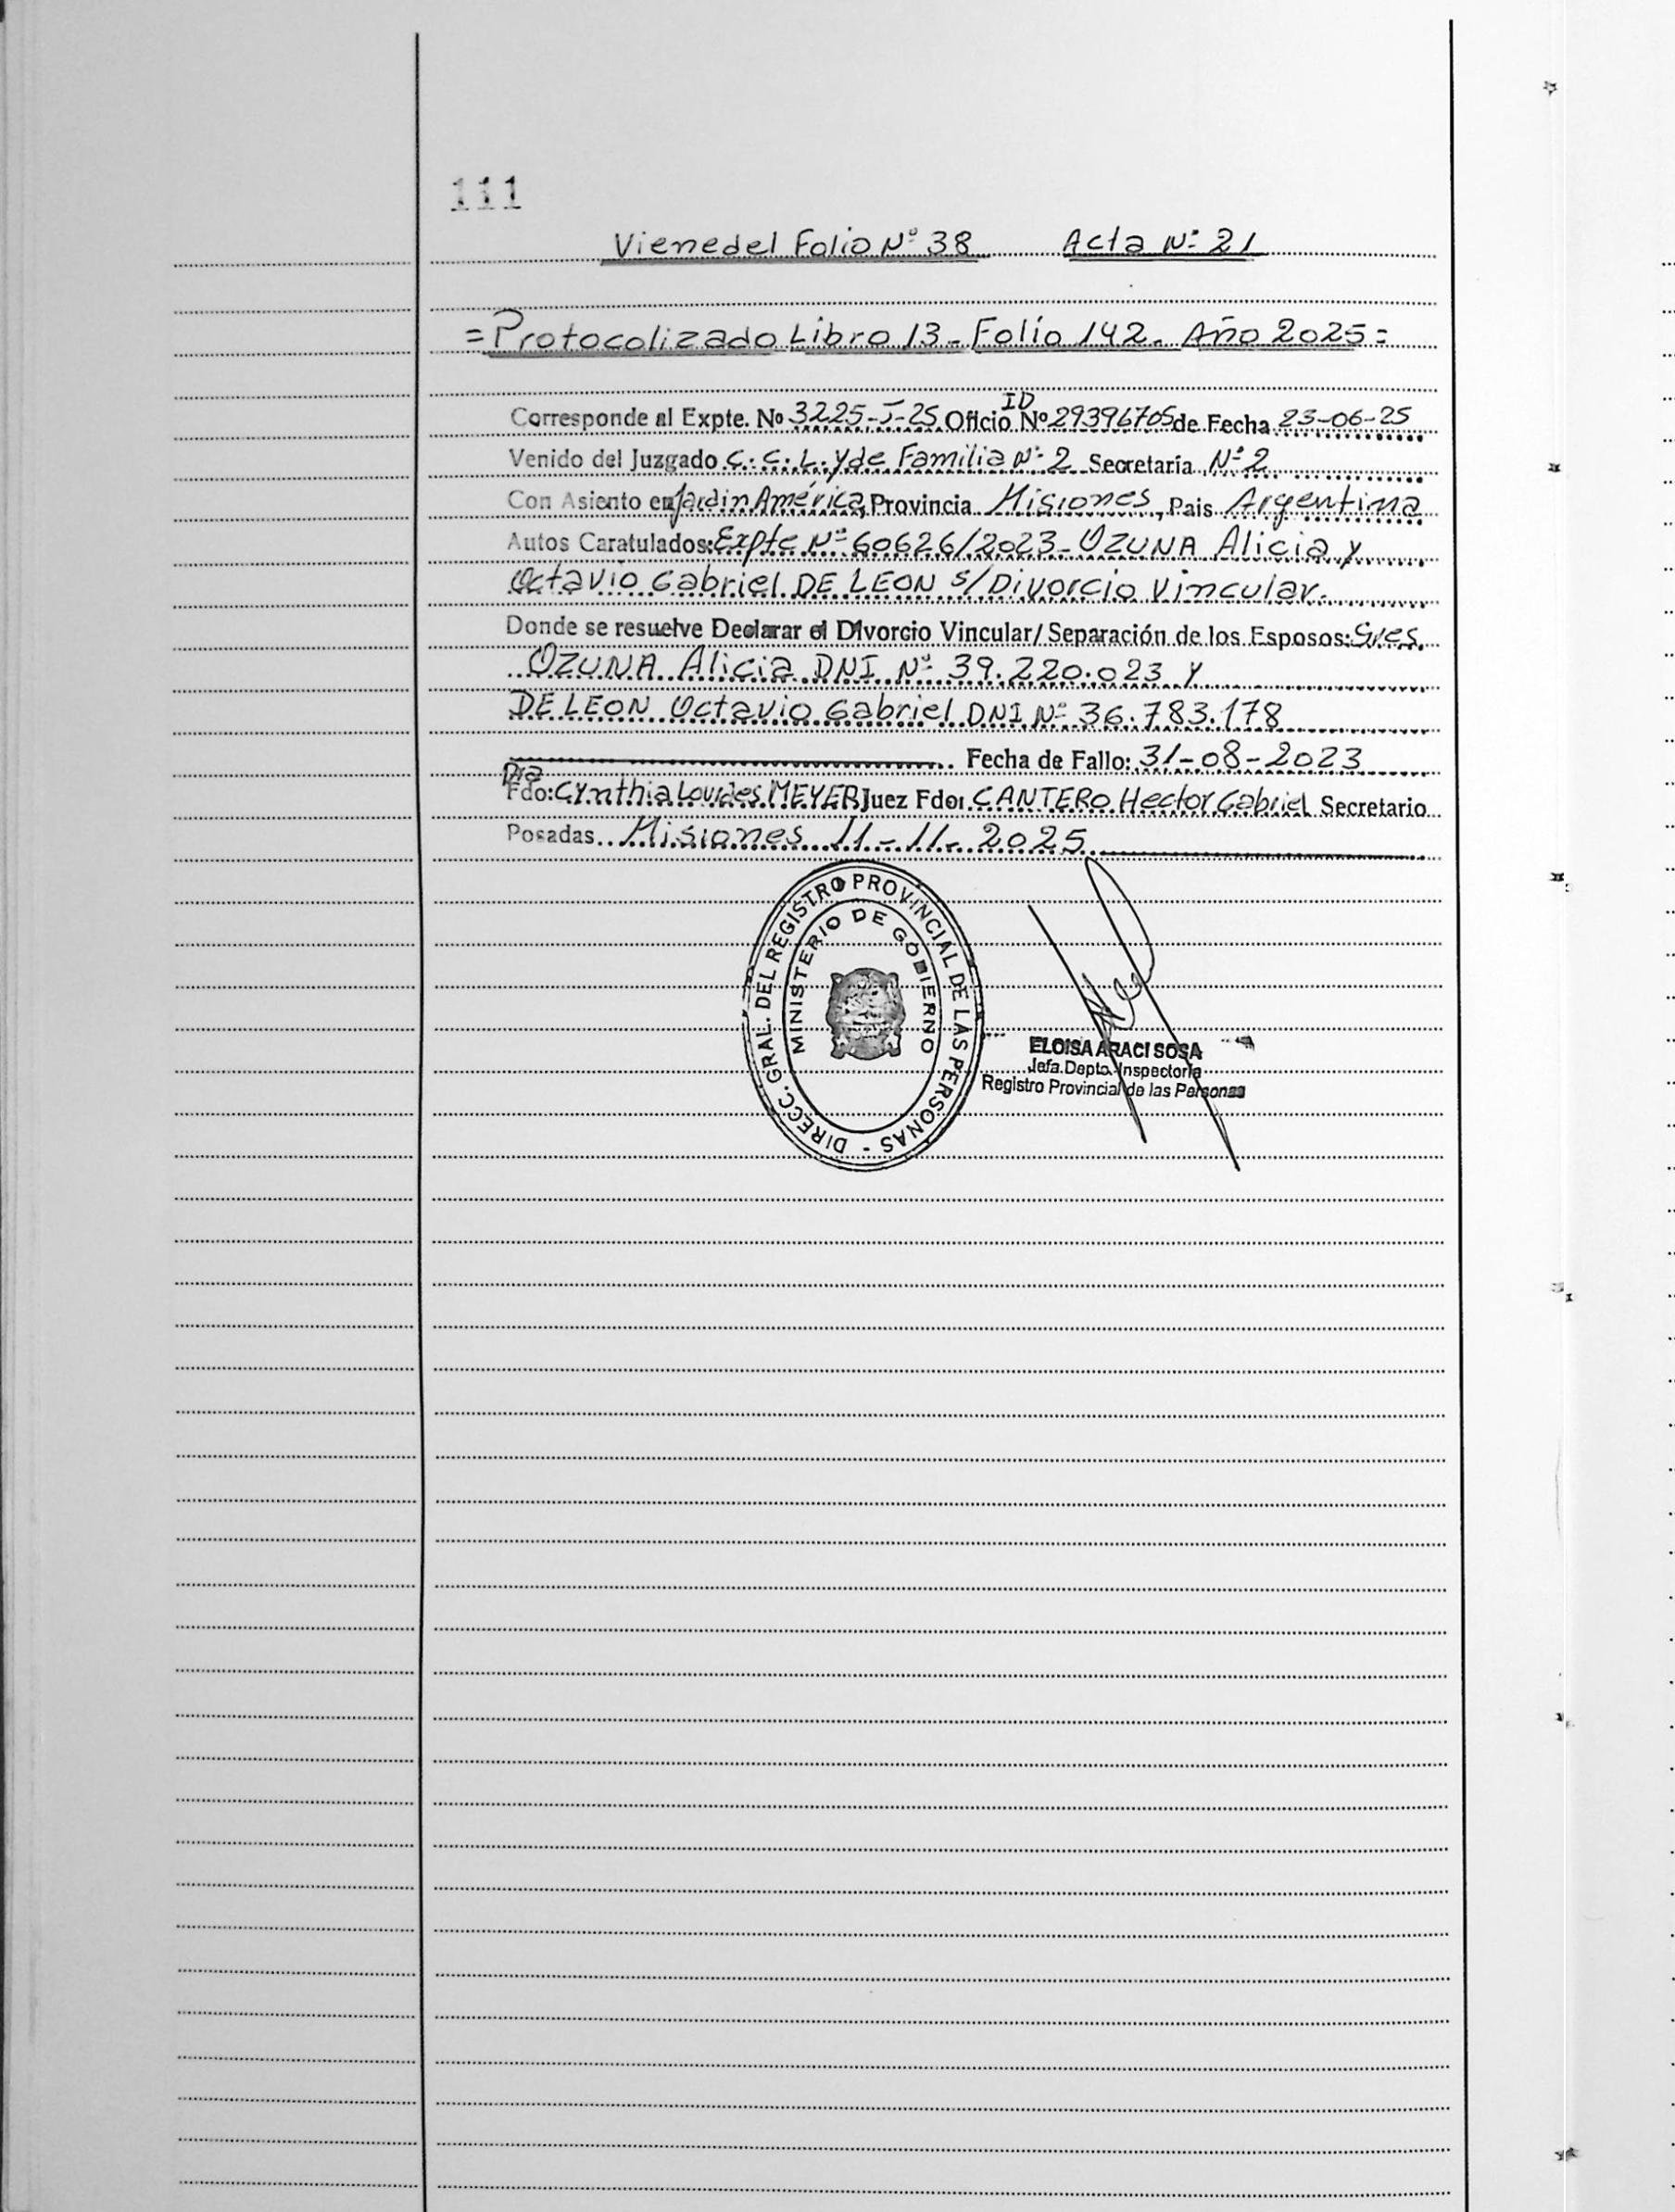 111
Viene del Folio Nº 38 Acta Nº 21
= Protocolizado Libro 13 - Folio 142. Año 2025 =
Corresponde al Expte. Nº 3225-J-25 Oficio ID Nº 29396705 de Fecha 23-06-25
Venido del Juzgado C. C. L. y de Familia Nº 2 Secretaría Nº 2
Con Asiento en Jardin América, Provincia Misiones, Pais Argentina
Autos Caratulados: Expte Nº 60626/2023 - OZUNA Alicia y
Octavio Gabriel DE LEON s/ Divorcio Vincular.
Donde se resuelve Declarar el Divorcio Vincular/ Separación de los Esposos: Sres.
OZUNA Alicia DNI Nº 39.220.023 y
DE LEON Octavio Gabriel DNI Nº 36.783.178
Fecha de Fallo: 31-08-2023
Fdo: Dra Cynthia Lourdes MEYER Juez Fdo: CANTERO Hector Gabriel Secretario
Posadas Misiones 11-11-2025
DIRECC. GRAL. DEL REGISTRO PROVINCIAL DE LAS PERSONAS -
MINISTERIO DE GOBIERNO
ELOISA ARACI SOSA
Jefa Depto. Inspectoría
Registro Provincial de las Personas